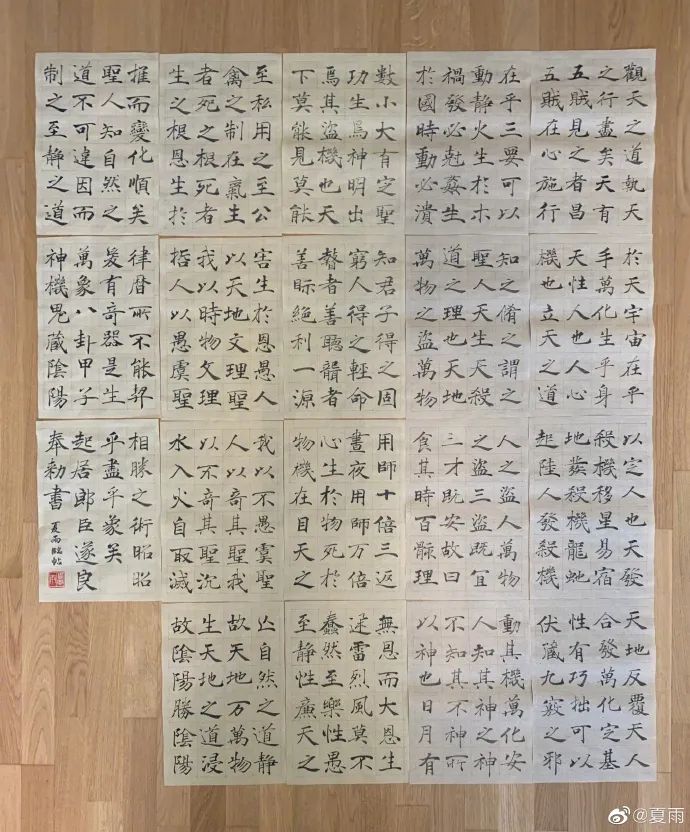 觀天之道執天
之行盡矣天有
五賊見之者昌
五賊在心施行
於天宇宙在乎
手萬化生乎身
天性人也人心
機也立天之道
以定人也天發
殺機移星易宿
地發殺機龍虵
起陸人發殺機
天地反覆天人
合發萬化定基
性有巧拙可以
伏藏九竅之邪
在乎三要可以
動靜火生於木
禍發必尅姦生
於國時動必潰
知之脩之謂之
聖人天生天殺
道之理也天地
萬物之盜萬物
人之盜人萬物
之盜三盜既宜
三才既安故曰
食其時百骸理
動其機萬化安
人知其神之神
不知其不神所
以神也日月有
數小大有定聖
功生焉神明出
焉其盜機也天
下莫能見莫能
知君子得之固
窮人得之輕命
瞽者善聽聾者
善眎絕利一源
用師十倍三返
晝夜用師万倍
心生於物死於
物機在目天之
無恩而大恩生
迅雷烈風莫不
蠢然至樂性愚
至靜性廉天之
至私用之至公
禽之制在氣生
者死之根死者
生之根恩生於
害生於恩愚人
以天地文理聖
我以時物文理
哲人以愚虞聖
我以不愚虞聖
人以奇其聖我
以不奇其聖沉
水入火自取滅
亡自然之道靜
故天地万萬物
生天地之道浸
故陰陽勝陰陽
推而變化順矣
聖人知自然之
道不可違因而
制之至靜之道
律曆所不能契
爰有奇器是生
萬象八卦甲子
神機鬼藏陰陽
相勝之術昭昭
乎盡乎象矣
起居郎臣遂良
奉勅書 夏雨臨帖
@夏雨